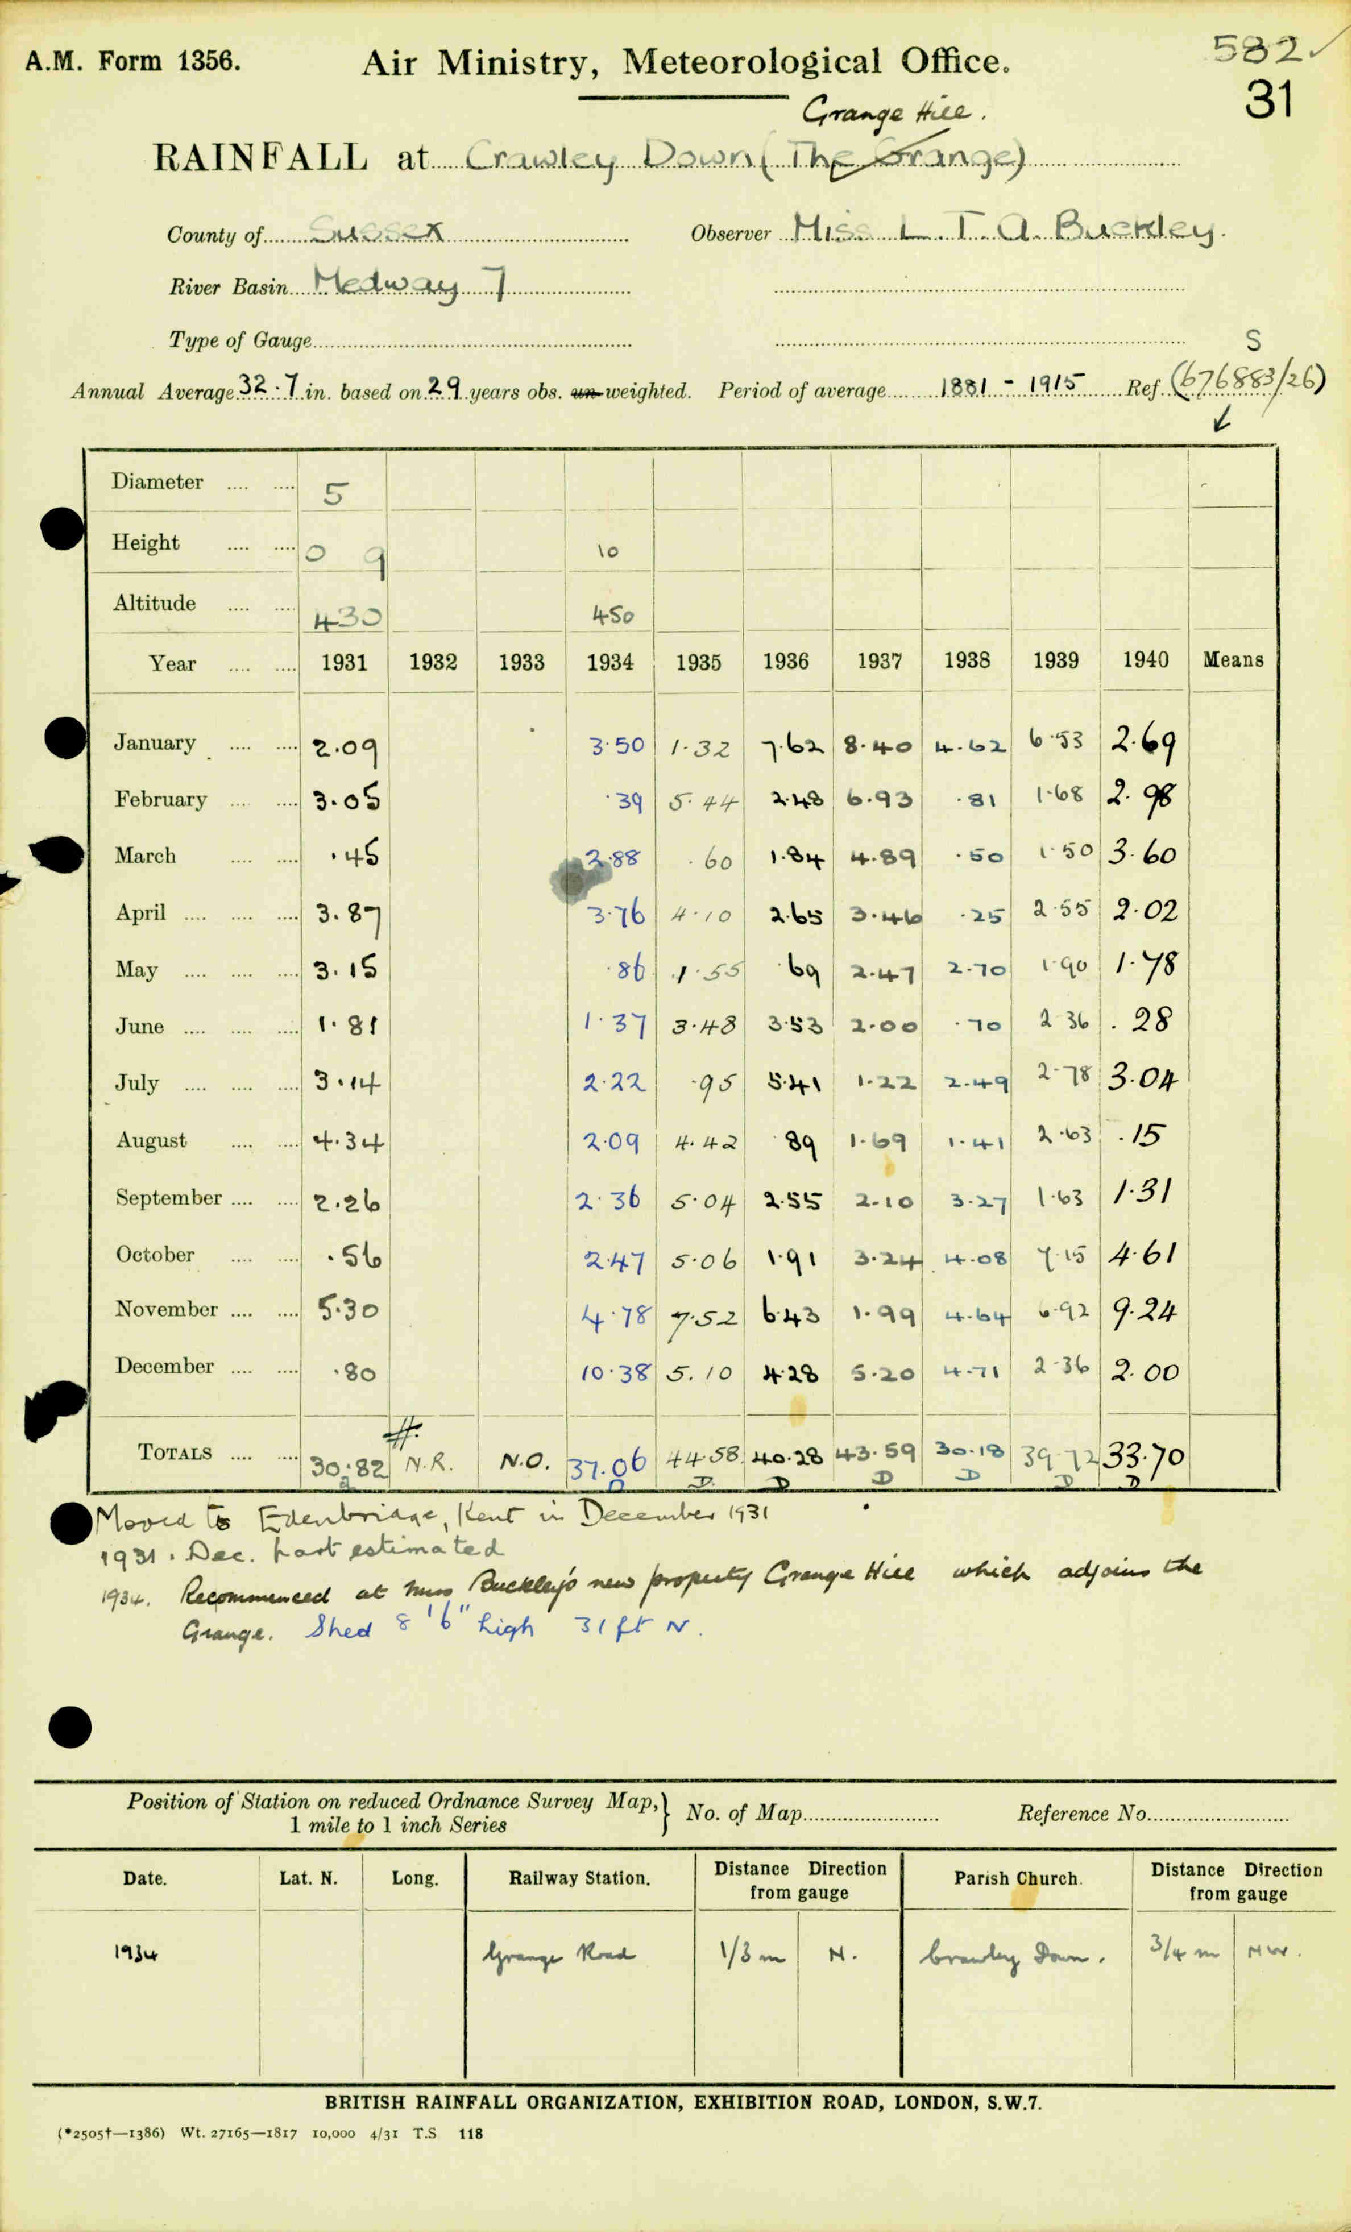 582 ✓
A.M. Form 1356. Air Ministry, Meteorological Office.
31
Grange Hill.
RAINFALL at Crawley Down (The Grange)
County of Sussex Observer Miss L. T. A. Buckley.
River Basin Medway 7
Type of Gauge
S
Annual Average 32.7 in. based on 29 years obs. un-weighted. Period of average 1881 - 1915 Ref. (676883/26)
Diameter .... .... 5
Height .... .... 0 9 10
Altitude .... .... 430 450
Year .... .... 1931 1932 1933 1934 1935 1936 1937 1938 1939 1940 Means
January .... .... 2.09 3.50 1.32 7.62 8.40 4.62 6.53 2.69
February .... .... 3.05 .39 5.44 2.48 6.93 .81 1.68 2.98
March .... .... .45 2.88 .60 1.84 4.89 .50 1.50 3.60
April .... .... .... 3.87 3.76 4.10 2.65 3.46 .25 2.55 2.02
May .... .... .... 3.15 .86 1.55 .69 2.47 2.70 1.90 1.78
June .... .... .... 1.81 1.37 3.48 3.53 2.00 .70 2.36 .28
July .... .... .... 3.14 2.22 .95 5.41 1.22 2.49 2.78 3.04
August .... .... 4.34 2.09 4.42 .89 1.69 1.41 2.63 .15
September .... .... 2.26 2.36 5.04 2.55 2.10 3.27 1.63 1.31
October .... .... .56 2.47 5.06 1.91 3.24 4.08 7.15 4.61
November .... .... 5.30 4.78 7.52 6.43 1.99 4.64 6.92 9.24
December .... .... .80 10.38 5.10 4.28 5.20 4.71 2.36 2.00
TOTALS .... .... 30.82 N.R. N.O. 37.06 44.58 40.28 43.59 30.18 39.72 33.70
D D D D D D D
Moved to Edenbridge, Kent in December 1931
1931. Dec. part estimated
1934. Recommenced at Miss Buckley's new property Grange Hill which adjoins the
Grange. Shed 8'6" high 31 ft N.
Position of Station on reduced Ordnance Survey Map, 1 mile to 1 inch Series } No. of Map Reference No.
Date. Lat. N. Long. Railway Station. Distance Direction from gauge Parish Church. Distance Direction from gauge
1934 Grange Road 1/3 m N. Crawley Down. 3/4 m NW.
BRITISH RAINFALL ORGANIZATION, EXHIBITION ROAD, LONDON, S.W.7.
(*2505†—1386) Wt. 27165—1817 10,000 4/31 T.S 118